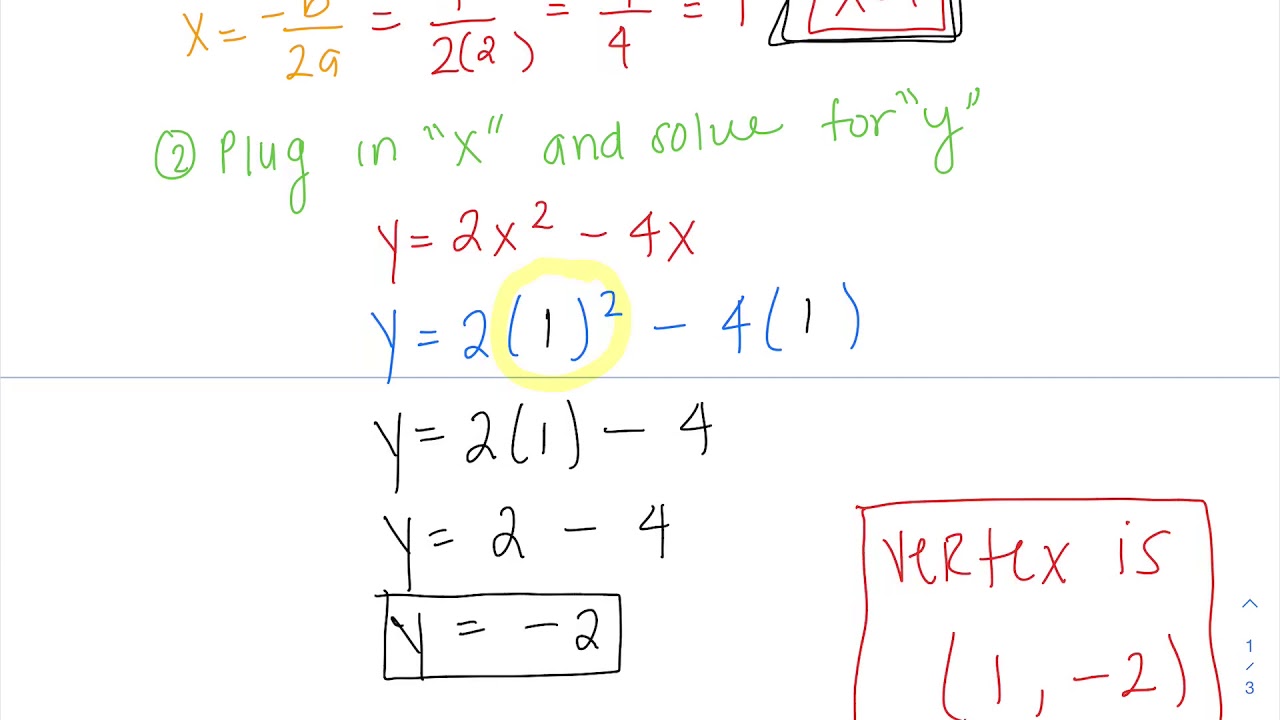 x = -b/2a = 4/2(2) = 4/4 = 1 x = 1
② Plug in "x" and solve for "y"
y = 2x² - 4x
y = 2(1)² - 4(1)
y = 2(1) - 4
y = 2 - 4
y = -2
vertex is
(1, -2)
1
/
3